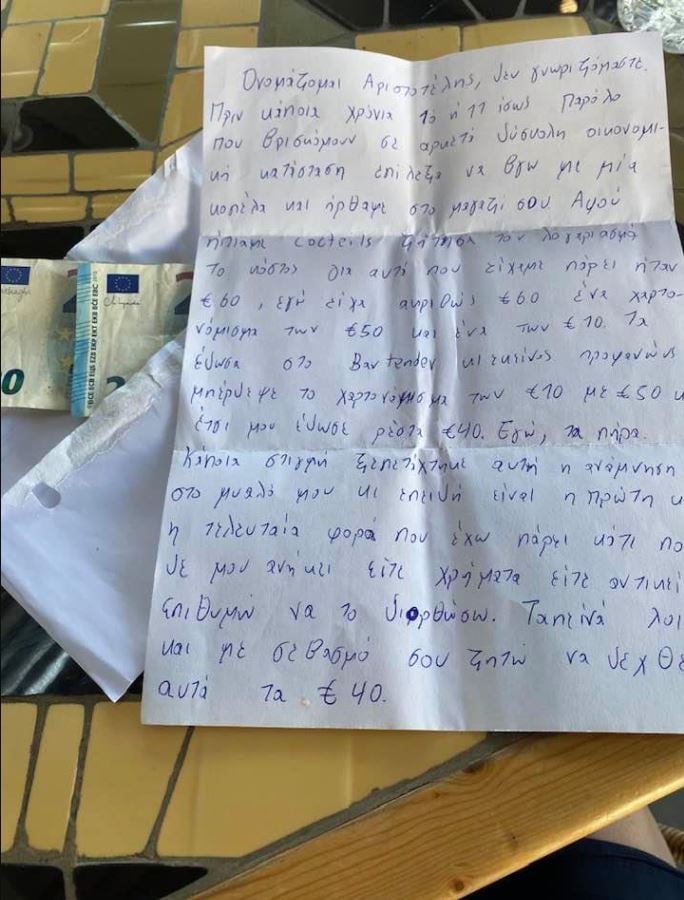 Ονομάζομαι Αριστοτέλης, δεν γνωριζόμαστε.
Πριν κάποια χρόνια 10 ή 11 ίσως Παρόλο
που βρισκόμουν σε αρκετά δύσκολη οικονομι-
κή κατάσταση επέλεξα να βγω με μία
κοπέλα και ήρθαμε στο μαγαζί σου Αφού
ήπιαμε cocteils ζήτησα τον λογαριασμό
Το κόστος για αυτά που είχαμε πάρει ήταν
€60, εγώ είχα ακριβώς €60 ένα χαρτο-
νόμισμα των €50 και ένα των €10. Τα
έδωσα στο Bartender κι εκείνος προφανώς
μπέρδεψε το χαρτονόμισμα των €10 με €50 κ
έτσι μου έδωσε ρέστα €40. Εγώ, τα πήρα.
Κάποια στιγμή ξεπετάχτηκε αυτή η ανάμνηση
στο μυαλό μου κι επειδή είναι η πρώτη κ
η τελευταία φορά που έχω πάρει κάτι πο
δε μου ανήκει είτε χρήματα είτε αντικεί
επιθυμώ να το διορθώσω. Ταπεινά λοι
και με σεβασμό σου ζητώ να δεχθε
αυτά τα €40.